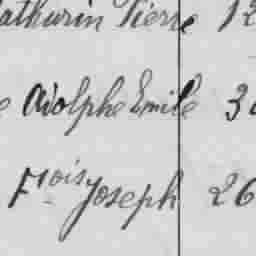 athurin Pierre 12
e Adolphe Emile 30
Fçois Joseph 26